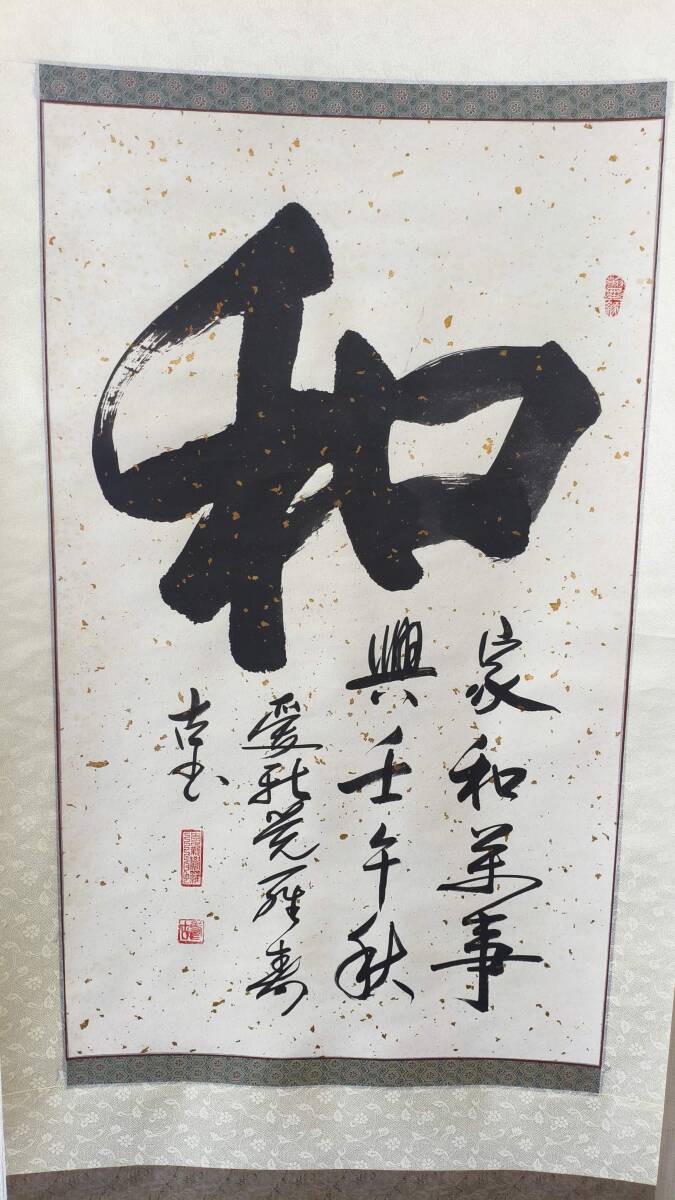 和
家和萬事
興壬午秋
愛新覺羅壽
古書